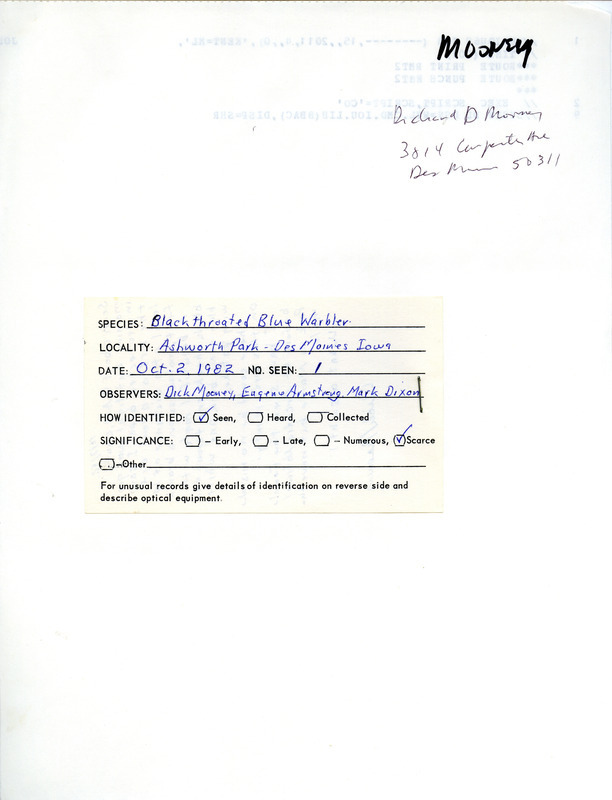 Mooney
Richard D Mooney
3814 Carpenter Ave
Des Moines 50311
SPECIES: Blackthroated Blue Warbler
LOCALITY: Ashworth Park - Des Moines Iowa
DATE: Oct. 2, 1982 NO. SEEN: 1
OBSERVERS: Dick Mooney, Eugene Armstrong, Mark Dixon
HOW IDENTIFIED: Seen, Heard, Collected
SIGNIFICANCE: – Early, – Late, – Numerous, Scarce
–Other
For unusual records give details of identification on reverse side and
describe optical equipment.